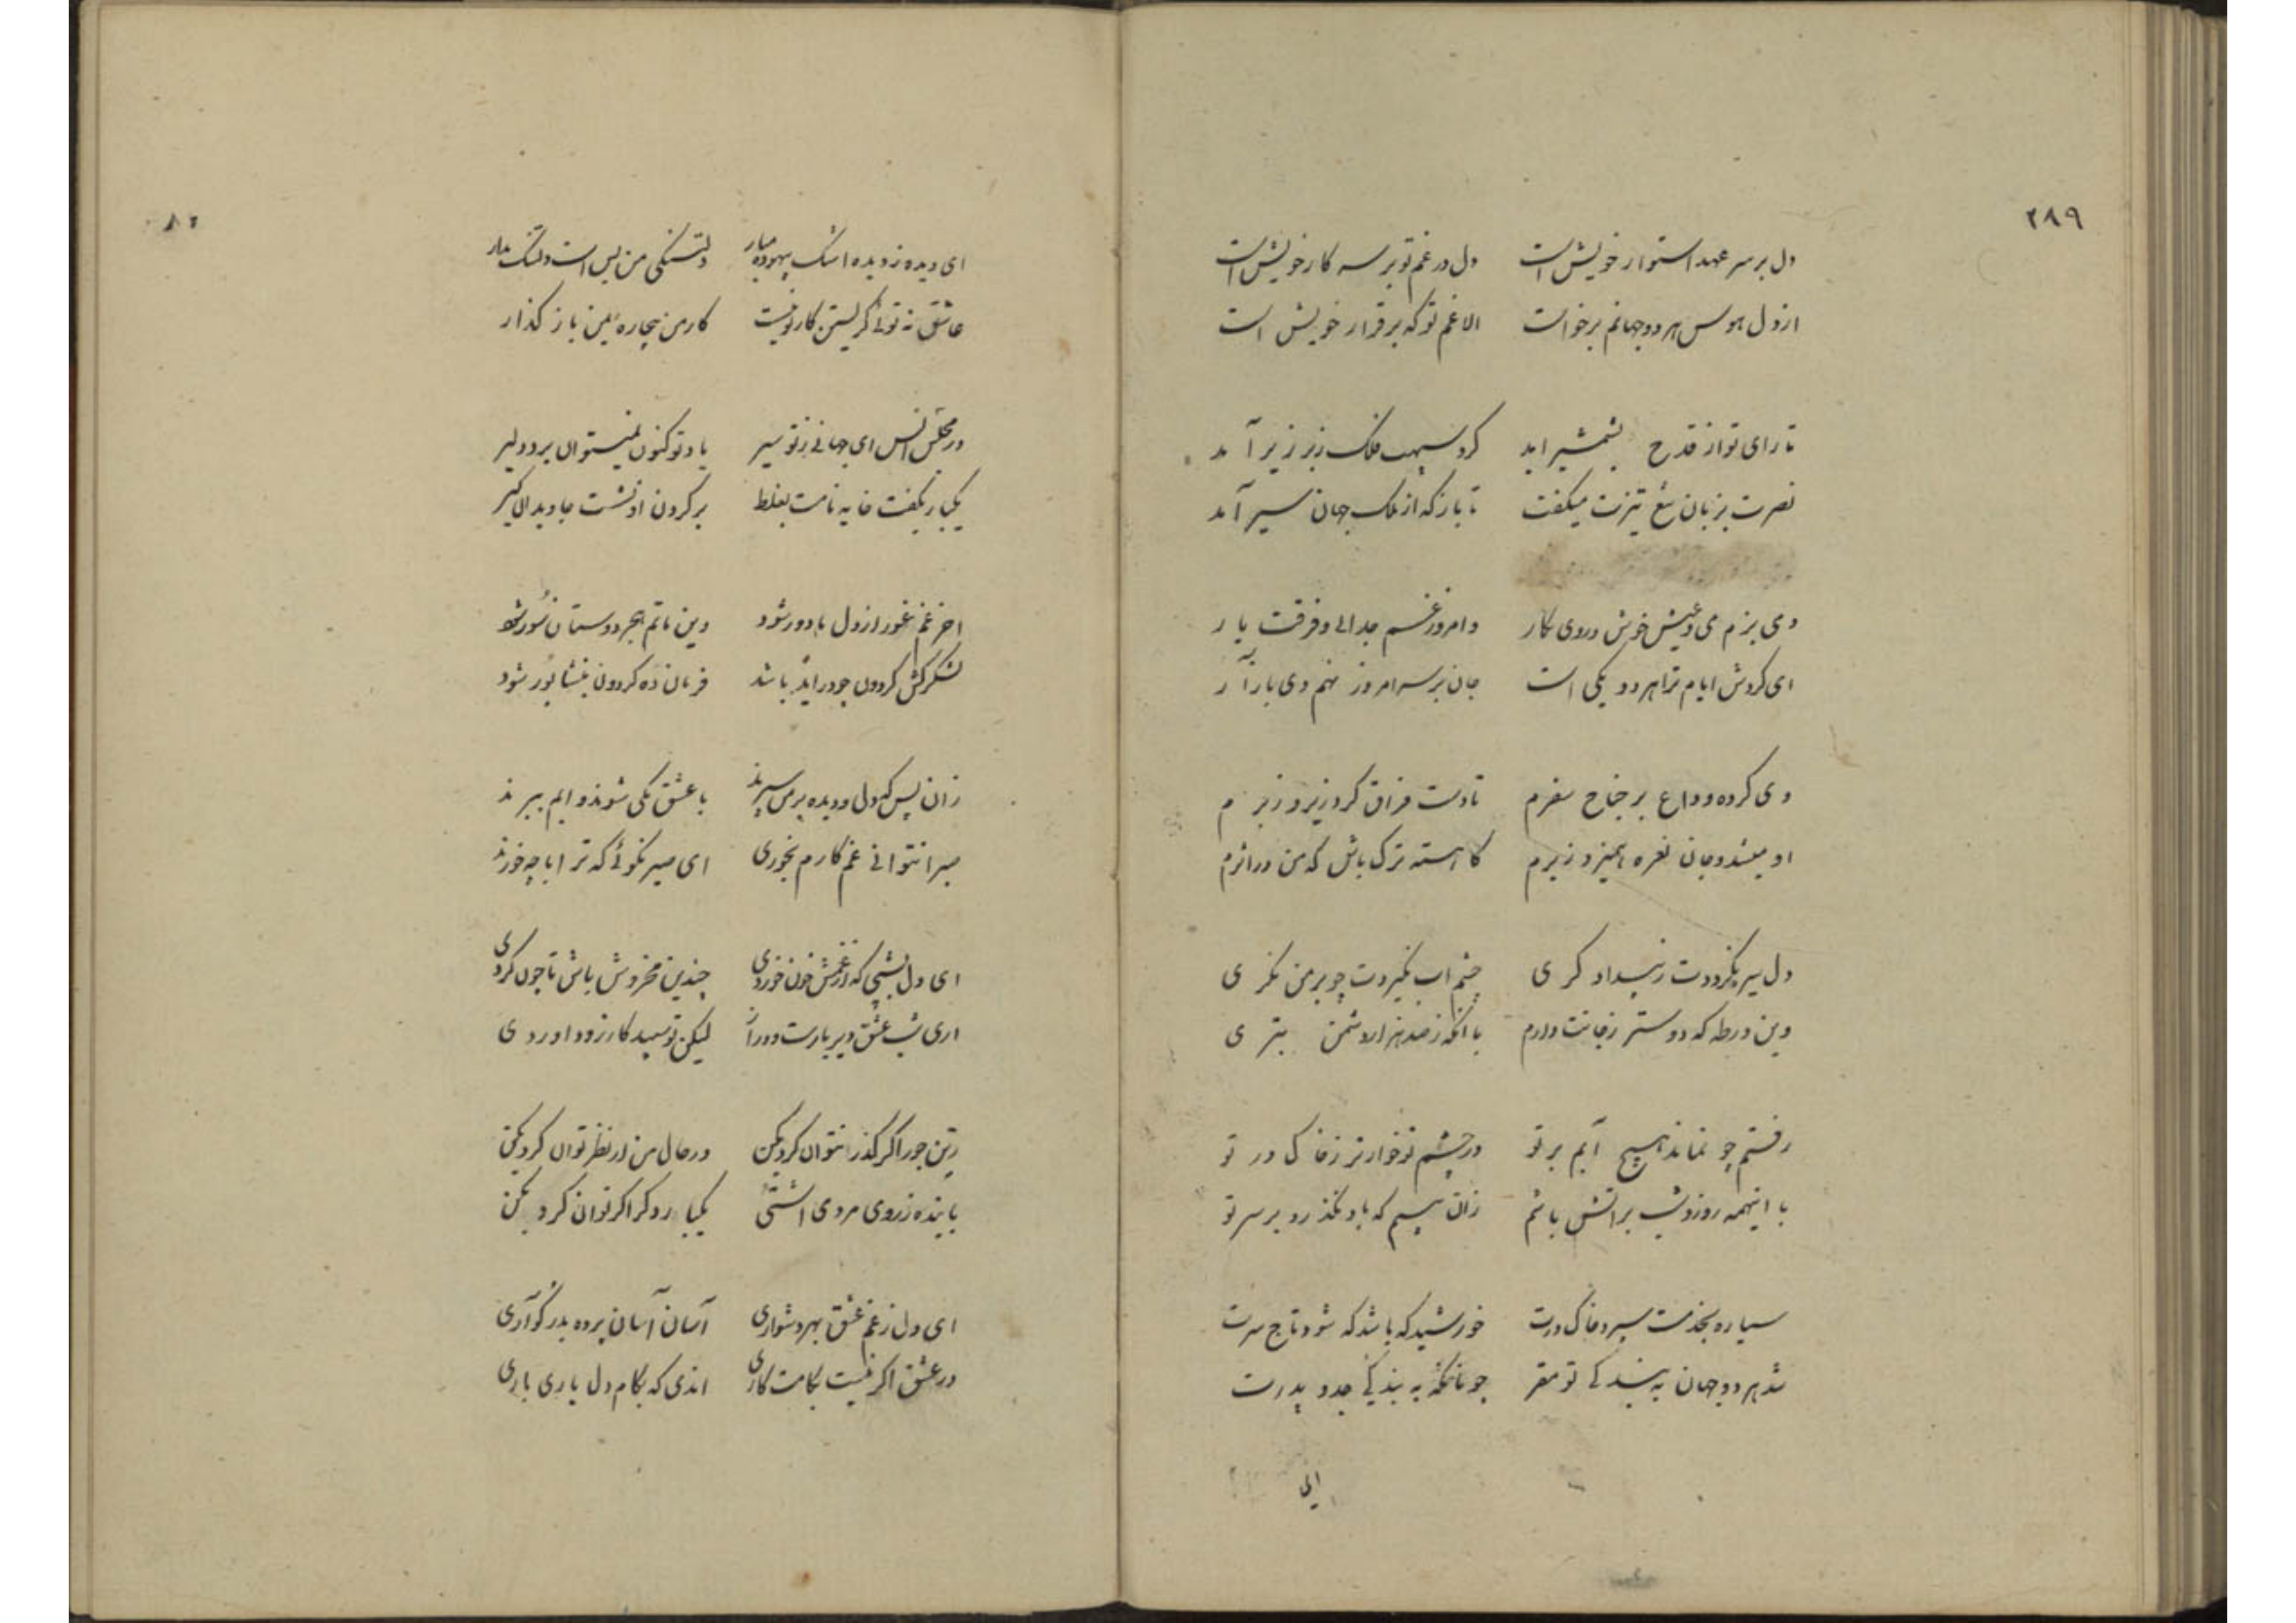 ۲۸۹
دل بر سر عهد استوار خویش است دل در غم تو بر سر کار خویش است
از دل هوس هر دو جهانم برخواست الا غم تو که برقرار خویش است
تا رای تو از قدح بشمشیر اید کرد سپهت فلک زبر زیر آمد
نصرت بزبان تیغ تیزت میکفت تا باز که از ملک جهان سیر آمد
دی بزم می و عیش خوش و روی نکار و امروز غم جدایی و فرقت یار
ای کردش ایام ترا هر دو یکی است جان بر سر امروز نهم دی باز آر
دی کرده وداع بر جناح سفرم تا دست فراق کرد زیر و زبرم
او میشد و جان نعره همیزد زبرم کاهسته ترک باش که من بر اثرم
دل سیر نکرددت ز بیداد کری چشم اب نکیردت چو بر من نکری
وین ورطه که دوستر ز جانت دارم با انکه ز صد هزار دشمن بتری
رفتم چو نماند هیچ آبم بر تو در چشم تو خوارتر ز خاک در تو
با اینهمه روز و شب بر اتش باشم زان بیم که باد نکذرد بر سر تو
سیاره بخدمت سپرد خاک درت خورشید که باشد که شود تاج سرت
شد هر دو جهان به بندکی تو مقر چونانکه به بندکی جد و پدرت
ای دیده ز دیده اشک بیهوده مبار دلتنکی من بس است دلتنک مدار
عاشق نه توئی کریستن کار تو نیست کار من بیچاره بمن باز کذار
در مجلس انس ای جهانی ز تو سیر یاد تو کنون نمیتوان برد دلیر
یکبار بکفت خایه نامت بغلط بر کردن او نشست جاوید الا کیر
اخر غم غور از دل ما دور شود وین ماتم هجر دوستان سور شود
لشکرکش کردون چو در اید باشد فرمان ده کردون بنشابور شود
زان پس که دل و دیده بر من سپرند با عشق یکی شوند و ابم ببرند
صبرا نتوانی غم کارم بخوری ای صبر نکوئی که ترا با چه خورند
ای دل بشبی که از غمش خون خوردی چندین مخروش باش تا چون کردی
اری شب عشق دیر بازست و دراز لیکن تو سپید کار زود اوردی
زین جور اکر کذر نتوان کرد بکن در حال من ار نظر توان کرد بکن
با بنده ز روی مردمی اشتی یکبار دکر اکر توان کرد بکن
ای دل ز غم عشق بهر دشواری آسان آسان پرده بدر کو آری
در عشق اکر نیست بکامت کاری اندی که بکام دل یاری باری